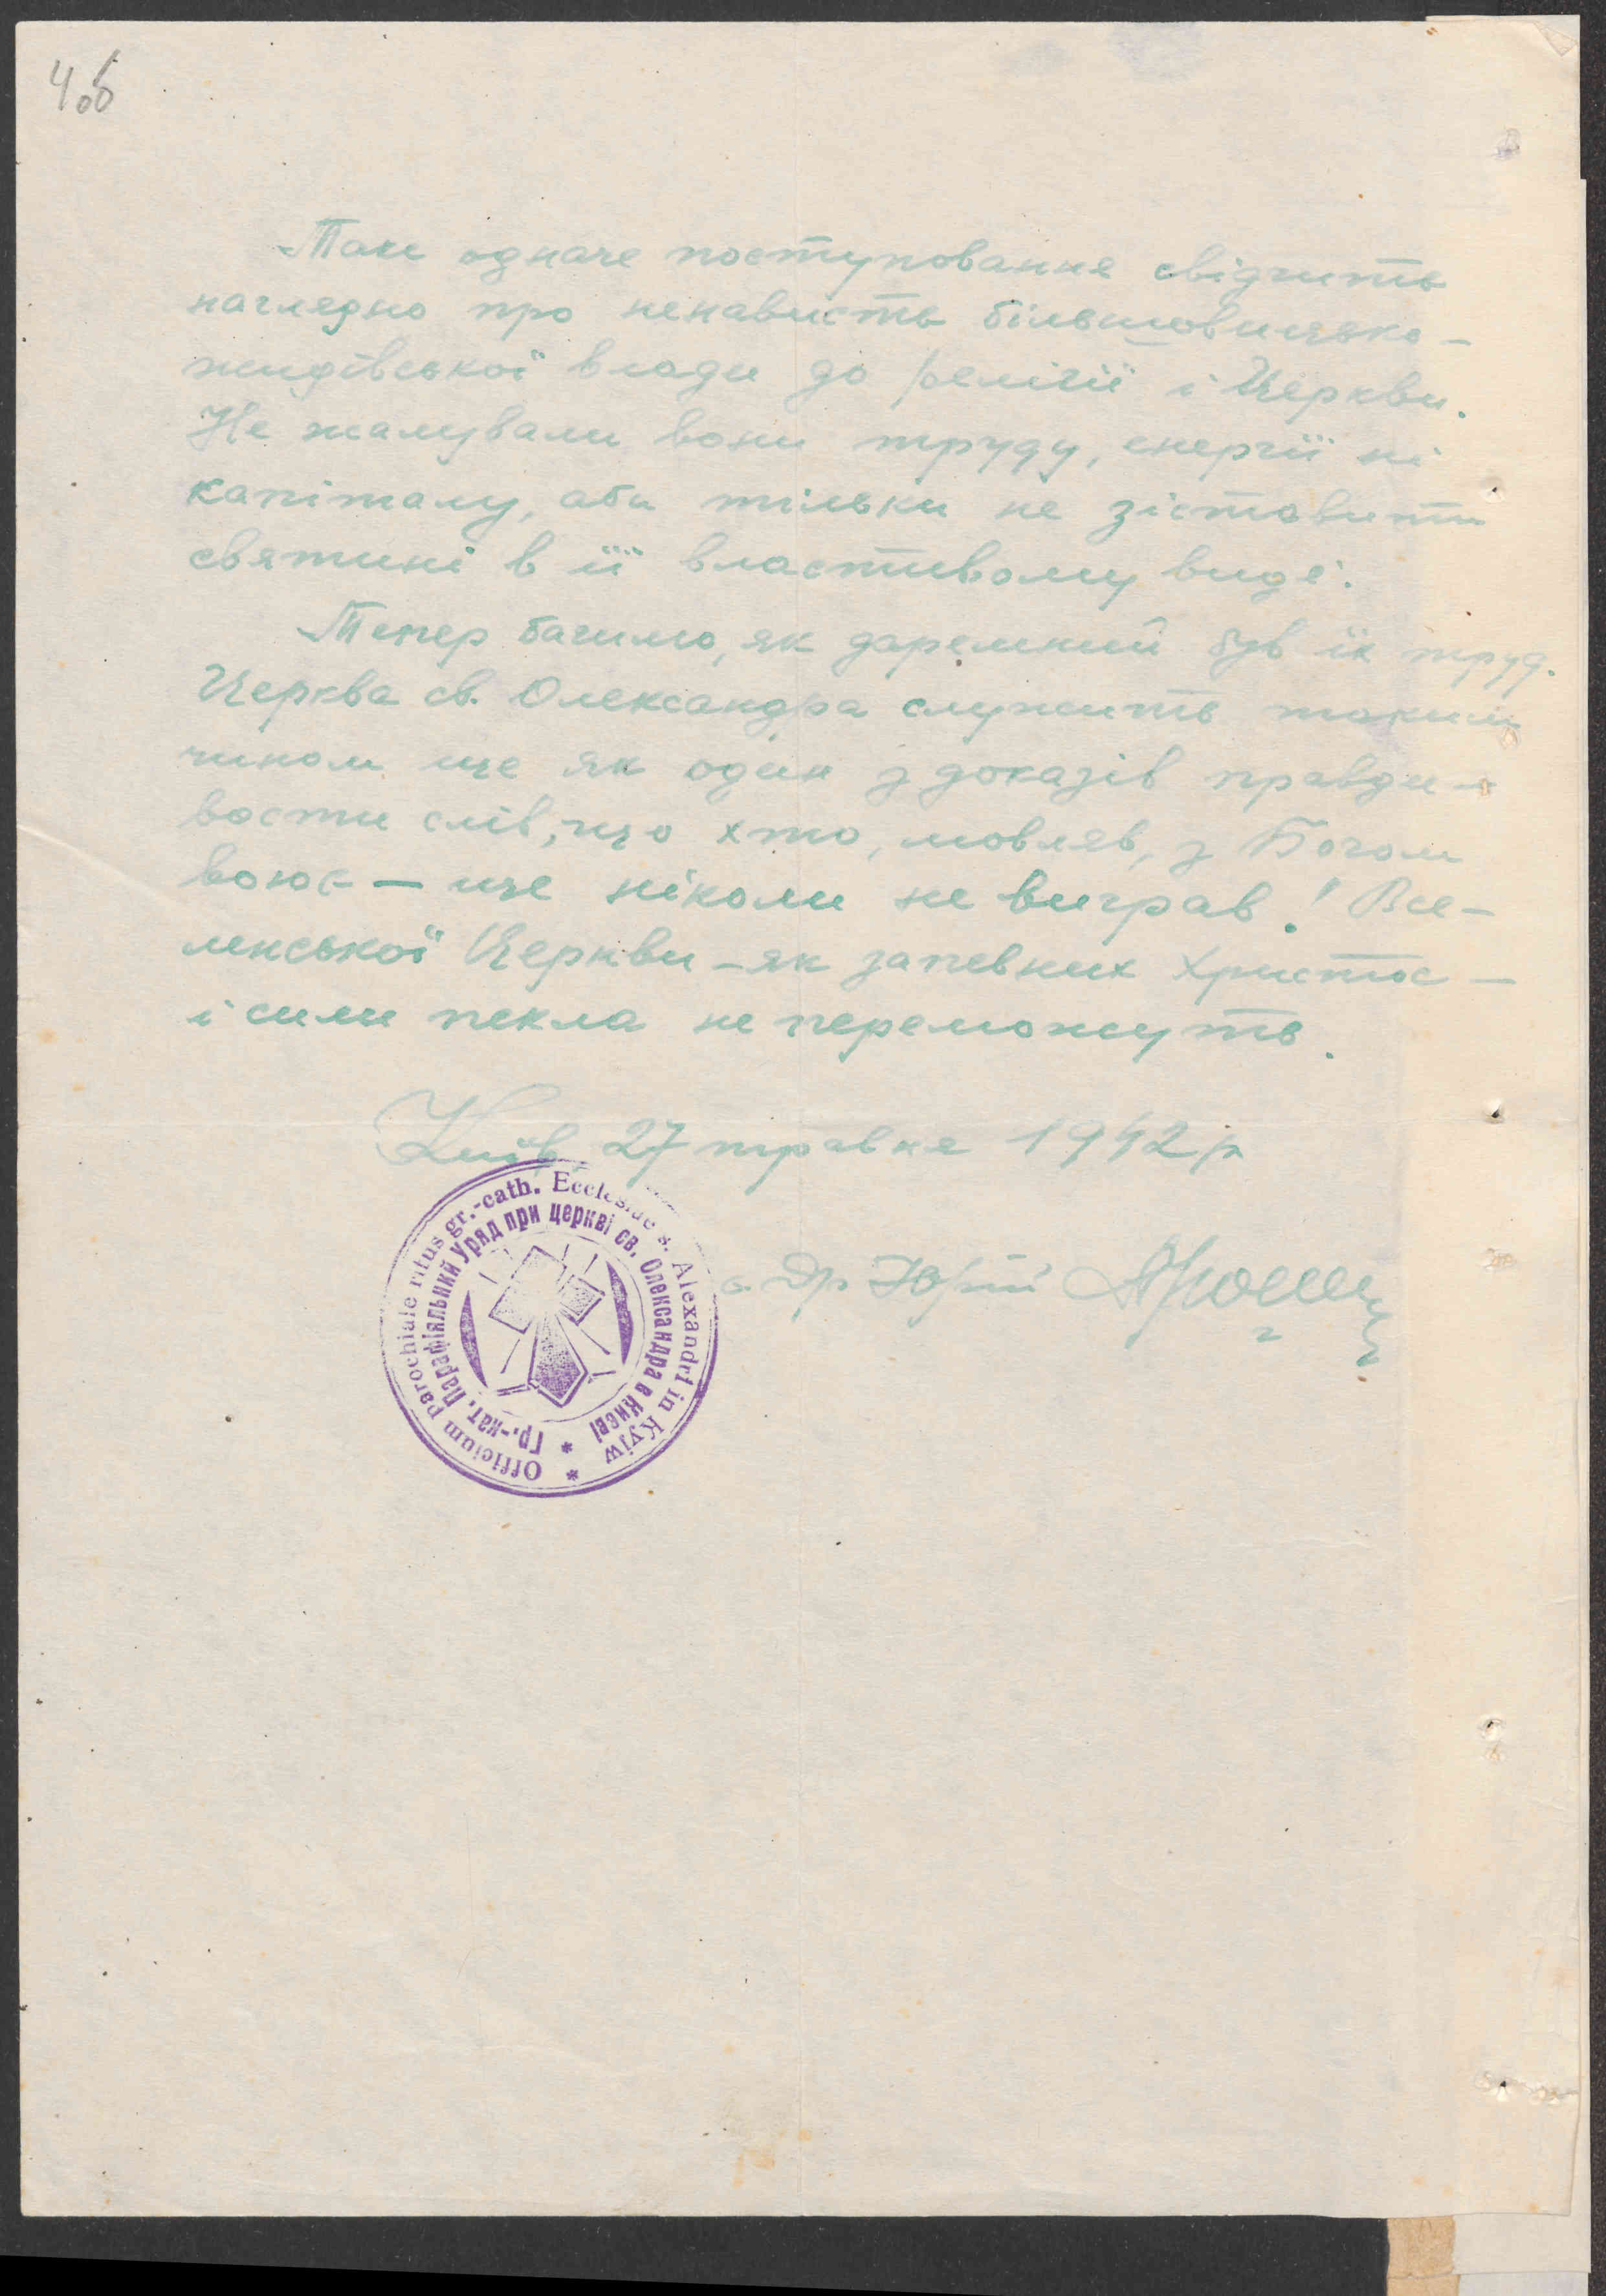 4об
Таке одначе поступовання свідчить
наглядно про ненависть більшовицько-
жидівської влади до релігії і Церкви.
Не жалували вони труду, енергії ні
капіталу, аби тільки не зіставити
святині в її властивому виді.
Тепер бачимо, як даремний був їх труд.
Церква св. Олександра служить таким
чином ще як один з доказів правди-
вости слів, що хто, мовляв, з Богом
воює — ще ніколи не виграв! Все-
ленської Церкви – як запевних Христос —
і сили пекла не переможуть.
Київ, 27 травня 1942 р
о. Др Юрій
Officium parochiale ritus gr.-cath. Ecclesiae s. Alexandri in Kyjw *
Гр.-кат. Парафіяльний Уряд при церкві св. Олександра в Києві *